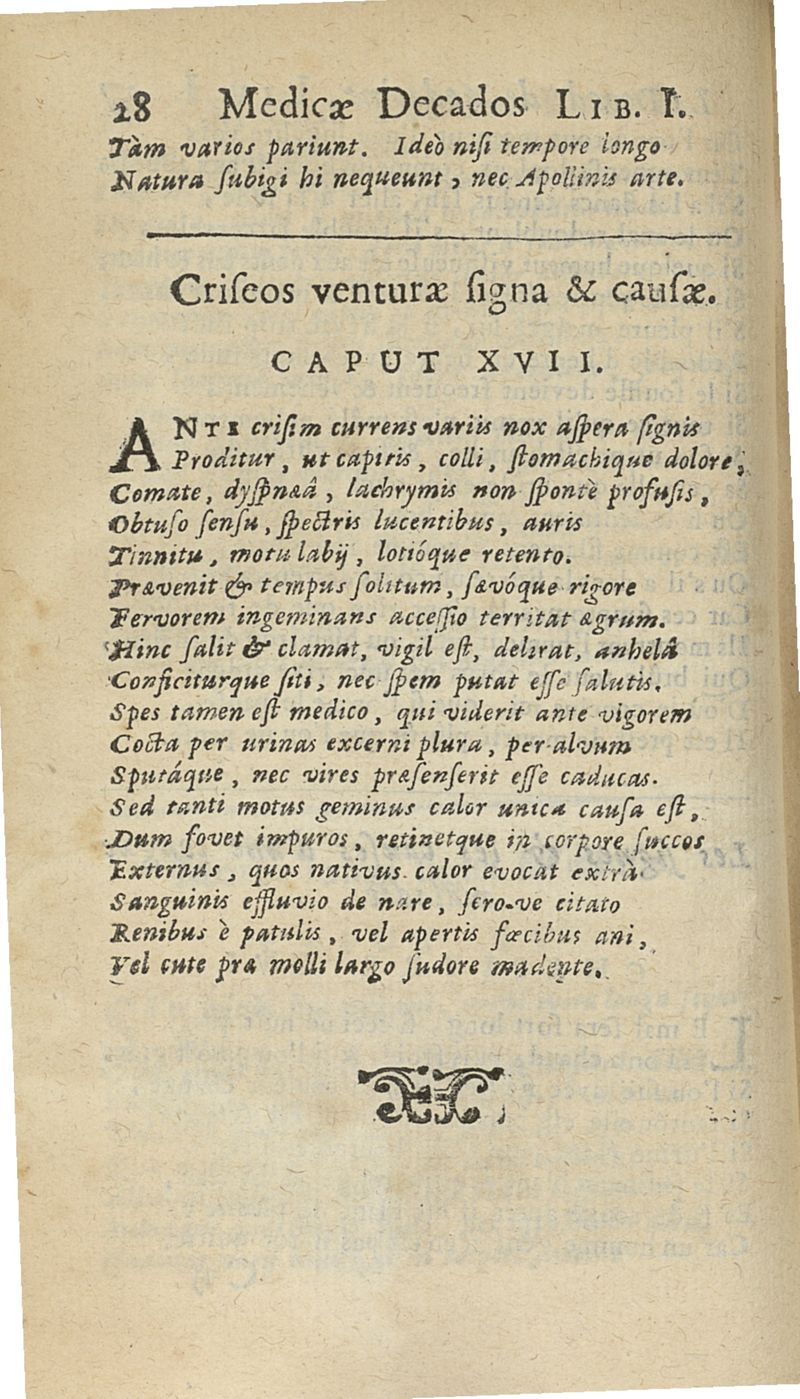 28 Medicæ Decados LIB. I.
Tàm varios pariunt. Ideò niſi tempore longo
Natura ſubigi hi nequeunt, nec Apollinis arte.
Criſeos venturæ ſigna & cauſæ.
CAPUT XVII.
ANTE criſim currens variis nox aſpera ſignis
Proditur, ut capitis, colli, ſtomachique dolore,
Comate, dyſpnæâ, lachrymis non ſpontè profuſis,
Obtuſo ſenſu, ſpectris lucentibus, auris
Tinnitu, motu labij, lotióque retento.
Prævenit & tempus ſolitum, ſævóque rigore
Fervorem ingeminans acceſſio territat ægrum.
Hinc ſalit & clamat, vigil eſt, delirat, anhelâ
Conficiturque ſiti, nec ſpem putat eſſe ſalutis.
Spes tamen eſt medico, qui viderit ante vigorem
Cocta per urinas excerni plura, per alvum
Sputáque, nec vires præſenſerit eſſe caducas.
Sed tanti motus geminus calor unica cauſa eſt,
Dum fovet impuros, retinetque in corpore ſuccos
Externus, quos nativus calor evocat extrà
Sanguinis effluvio de nare, ſero-ve citato
Renibus è patulis, vel apertis fœcibus ani,
Vel cute præ molli largo ſudore madente.